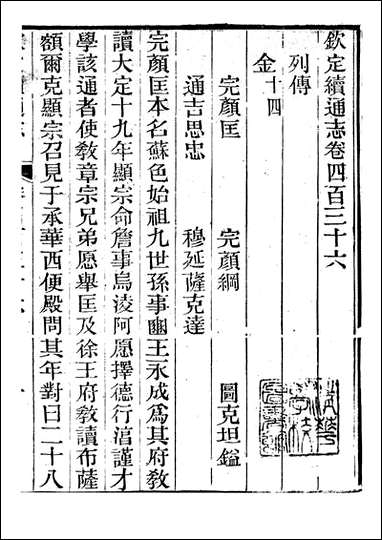 欽定續通志卷四百三十六
列傳
金十四
完顏匡 完顏綱 圖克坦鎰
通吉思忠 穆延薩克達
完顏匡本名蘇色始祖九世孫事豳王永成爲其府教
讀大定十九年顯宗命詹事烏淩阿愿擇德行淯謹才
學該通者使教章宗兄弟愿舉匡及徐王府教讀布薩
額爾克顯宗召見于承華西便殿問其年對曰二十八